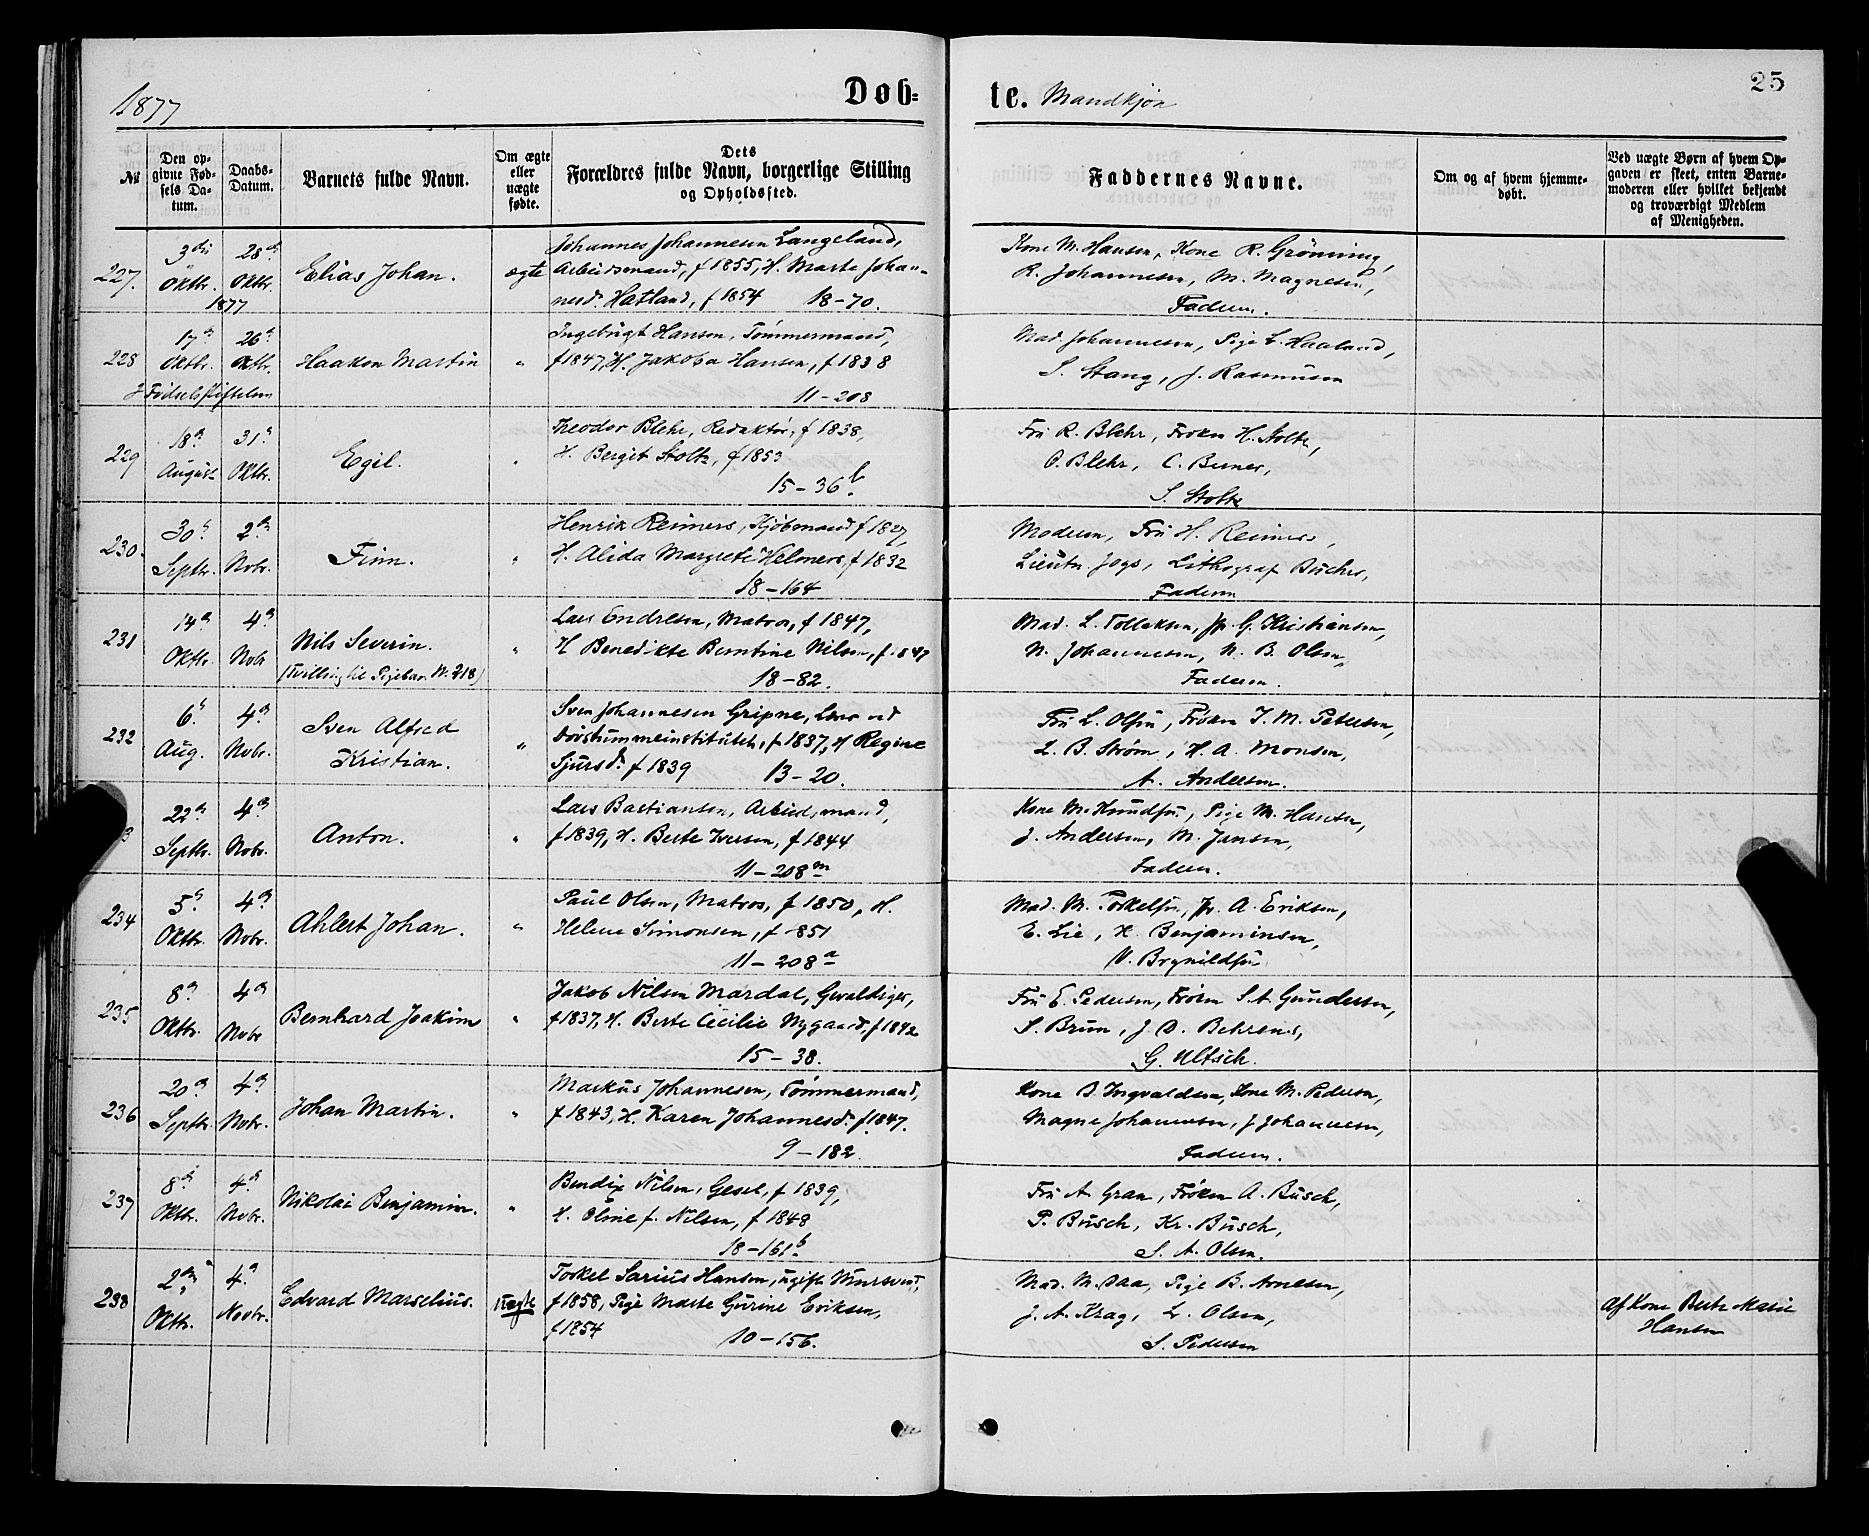 1877
Døb=
te. Mandkjøn
25
No
Den op-
givne Fød-
sels Da-
tum.
Daabs-
Datum.
Barnets fulde Navn.
Om ægte
eller
uægte
fødte.
Dets
Forældres fulde Navn, borgerlige Stilling
og Opholdssted.
Faddernes Navne.
Om og af hvem hjemme-
døbt.
Ved uægte Børn af hvem Op-
gaven er skeet, enten Barne-
moderen eller hvilket bekjendt
og troværdigt Medlem
af Menigheden.
227.
3die
Oktbr.
28de
Oktbr.
1877
Elias Johan.
ægte
Johannes Johannesen Langeland,
Arbeidsmand, f 1855, H. Marta Johan-
nesd. Hatland, f 1854 18-70.
Kone M. Hansen, Kone R. Grønning,
R. Johannesen, M. Magnesen,
Faderen.
228
17de
Oktbr.
26de
Oktbr.
I Fødselsstiftelsen
Haakon Martin
"
Ingebrigt Hansen, Tømmermand,
f 1847, H. Jakoba Hansen, f 1838
11-208
Mad. Johannesen, Pige L. Haaland,
S. Stang, J. Rasmusen
229
18de
August
31te
Oktbr.
Egil.
"
Theodor Blehr, Redaktør, f 1838,
H. Bergit Stoltz, f 1853
15-36b.
Fru R. Blehr, Frøken H. Stoltz,
O. Blehr, C. Berner,
S. Stoltz
230.
30te
Septbr.
2den
Novbr.
Finn.
"
Henrik Reimers, Kjøbmand f 1827,
H. Alida Margrete Helmers, f 1832
18-164
Moderen, Fru H. Reimers,
Lieutn. Jogs, Lithograf Bucher,
Faderen
231
14de
Oktbr.
4de
Nobr
Nils Severin.
(Tvilling til Pigebarn N. 218)
"
Lars Endresen, Matros, f 1847,
H Benedikte Berntine Nilsen, f. 847
18-82.
Mad. L. Tollaksen, Jfr. G. Kristiansen,
N. Johannesen, N. B. Olsen,
Faderen.
232
6te
Aug.
4de
Nobr.
Sven Alfred
Kristian.
"
Sven Johannesen Gripne, Lærer ved
Døvstummeinstitutet, f 1837, H Regine
Sjursd. f 1839 13-20.
Fru L. Olsen, Frøken J. M. Petersen,
L. B. Strøm, H. A. Monsen,
A. Andersen.
3
22de
Septbr.
4de
Nobr.
Anton.
"
Lars Bastiansen, Arbeidsmand,
f 1839, H. Berte Iversen, f 1844
11-208m
Kone M. Knudsen, Pige M. Hansen,
J. Andersen, M. Jansen,
Faderen.
234
5te
Oktbr.
4de
Nobr.
Ahlert Johan.
"
Paul Olsen, Matros, f 1850, H.
Helene Simonsen, f 851
11-208a
Mad. M. Torkelsen, Jfr. A. Eriksen,
E. Lie, H. Benjaminsen,
N. Brynildsen
235
8de
Oktbr.
4de
Nobr
Bernhard Joakim
"
Jakob Nilsen Mardal, Gevaldiger,
f 1837, H. Berte Cecilie Nygaard, f 1842
15-38.
Fru E. Pedersen, Frøken S. A. Gundersen,
S. Brun, J. D. Behrens,
G. Ultsch.
236
20de
Septbr.
4de
Nobr.
Johan Martin.
"
Markus Johannesen, Tømmermand,
f 1843, H. Karen Johannesd. f. 1847.
9-182.
Kone B. Ingvaldsen, Kone M. Pedersen,
Magne Johannesen, J Johannesen,
Faderen.
237
8de
Oktbr.
4de
Nobr.
Nikolai Benjamin.
"
Bendix Nilsen, Gesel, f 1839,
H. Oline f. Nilsen, f 1848
18-161b
Fru A. Gran, Frøken A. Busch,
P. Busch, Kr. Busch,
S. A. Olsen.
238
2den
Oktbr.
4de
Novbr.
Edvard Marselius.
Uægte
Torkel Sarius Hansen, ugift Mursvend,
f 1858, Pige Marte Gurine Eriksen,
f 1854 10-156.
Mad. M. Daa, Pige B. Arnesen,
J. A. Krag, L. Olsen,
S. Pedersen
Af Kone Berte Marie
Hansen